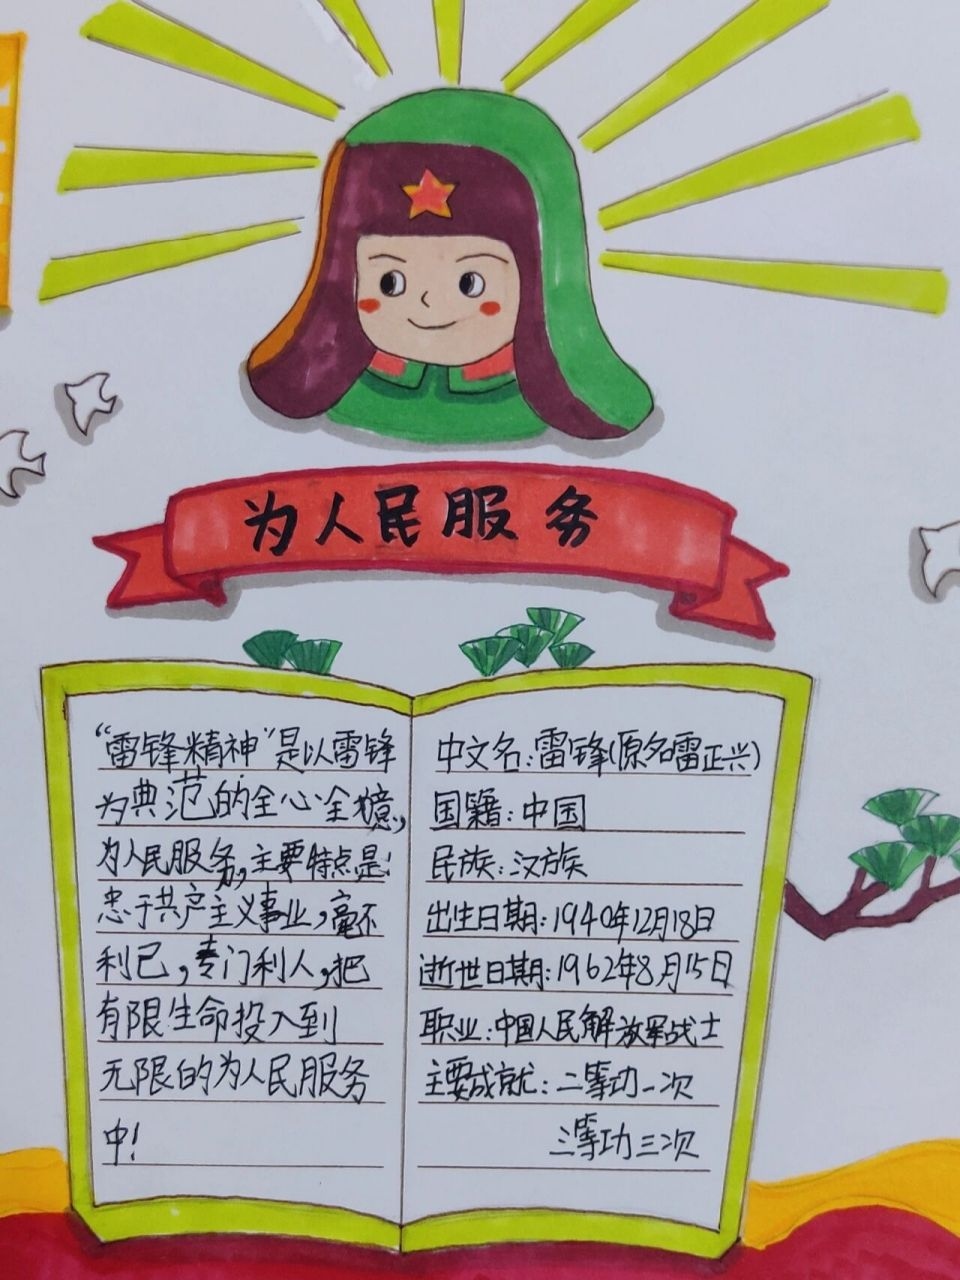 为人民服务
“雷锋精神”是以雷锋
为典范的全心全意,
为人民服务,主要特点是:
忠于共产主义事业,毫不
利己,专门利人,把
有限生命投入到
无限的为人民服务
中!
中文名:雷锋(原名雷正兴)
国籍:中国
民族:汉族
出生日期:1940年12月18日
逝世日期:1962年8月15日
职业:中国人民解放军战士
主要成就:二等功一次
三等功三次